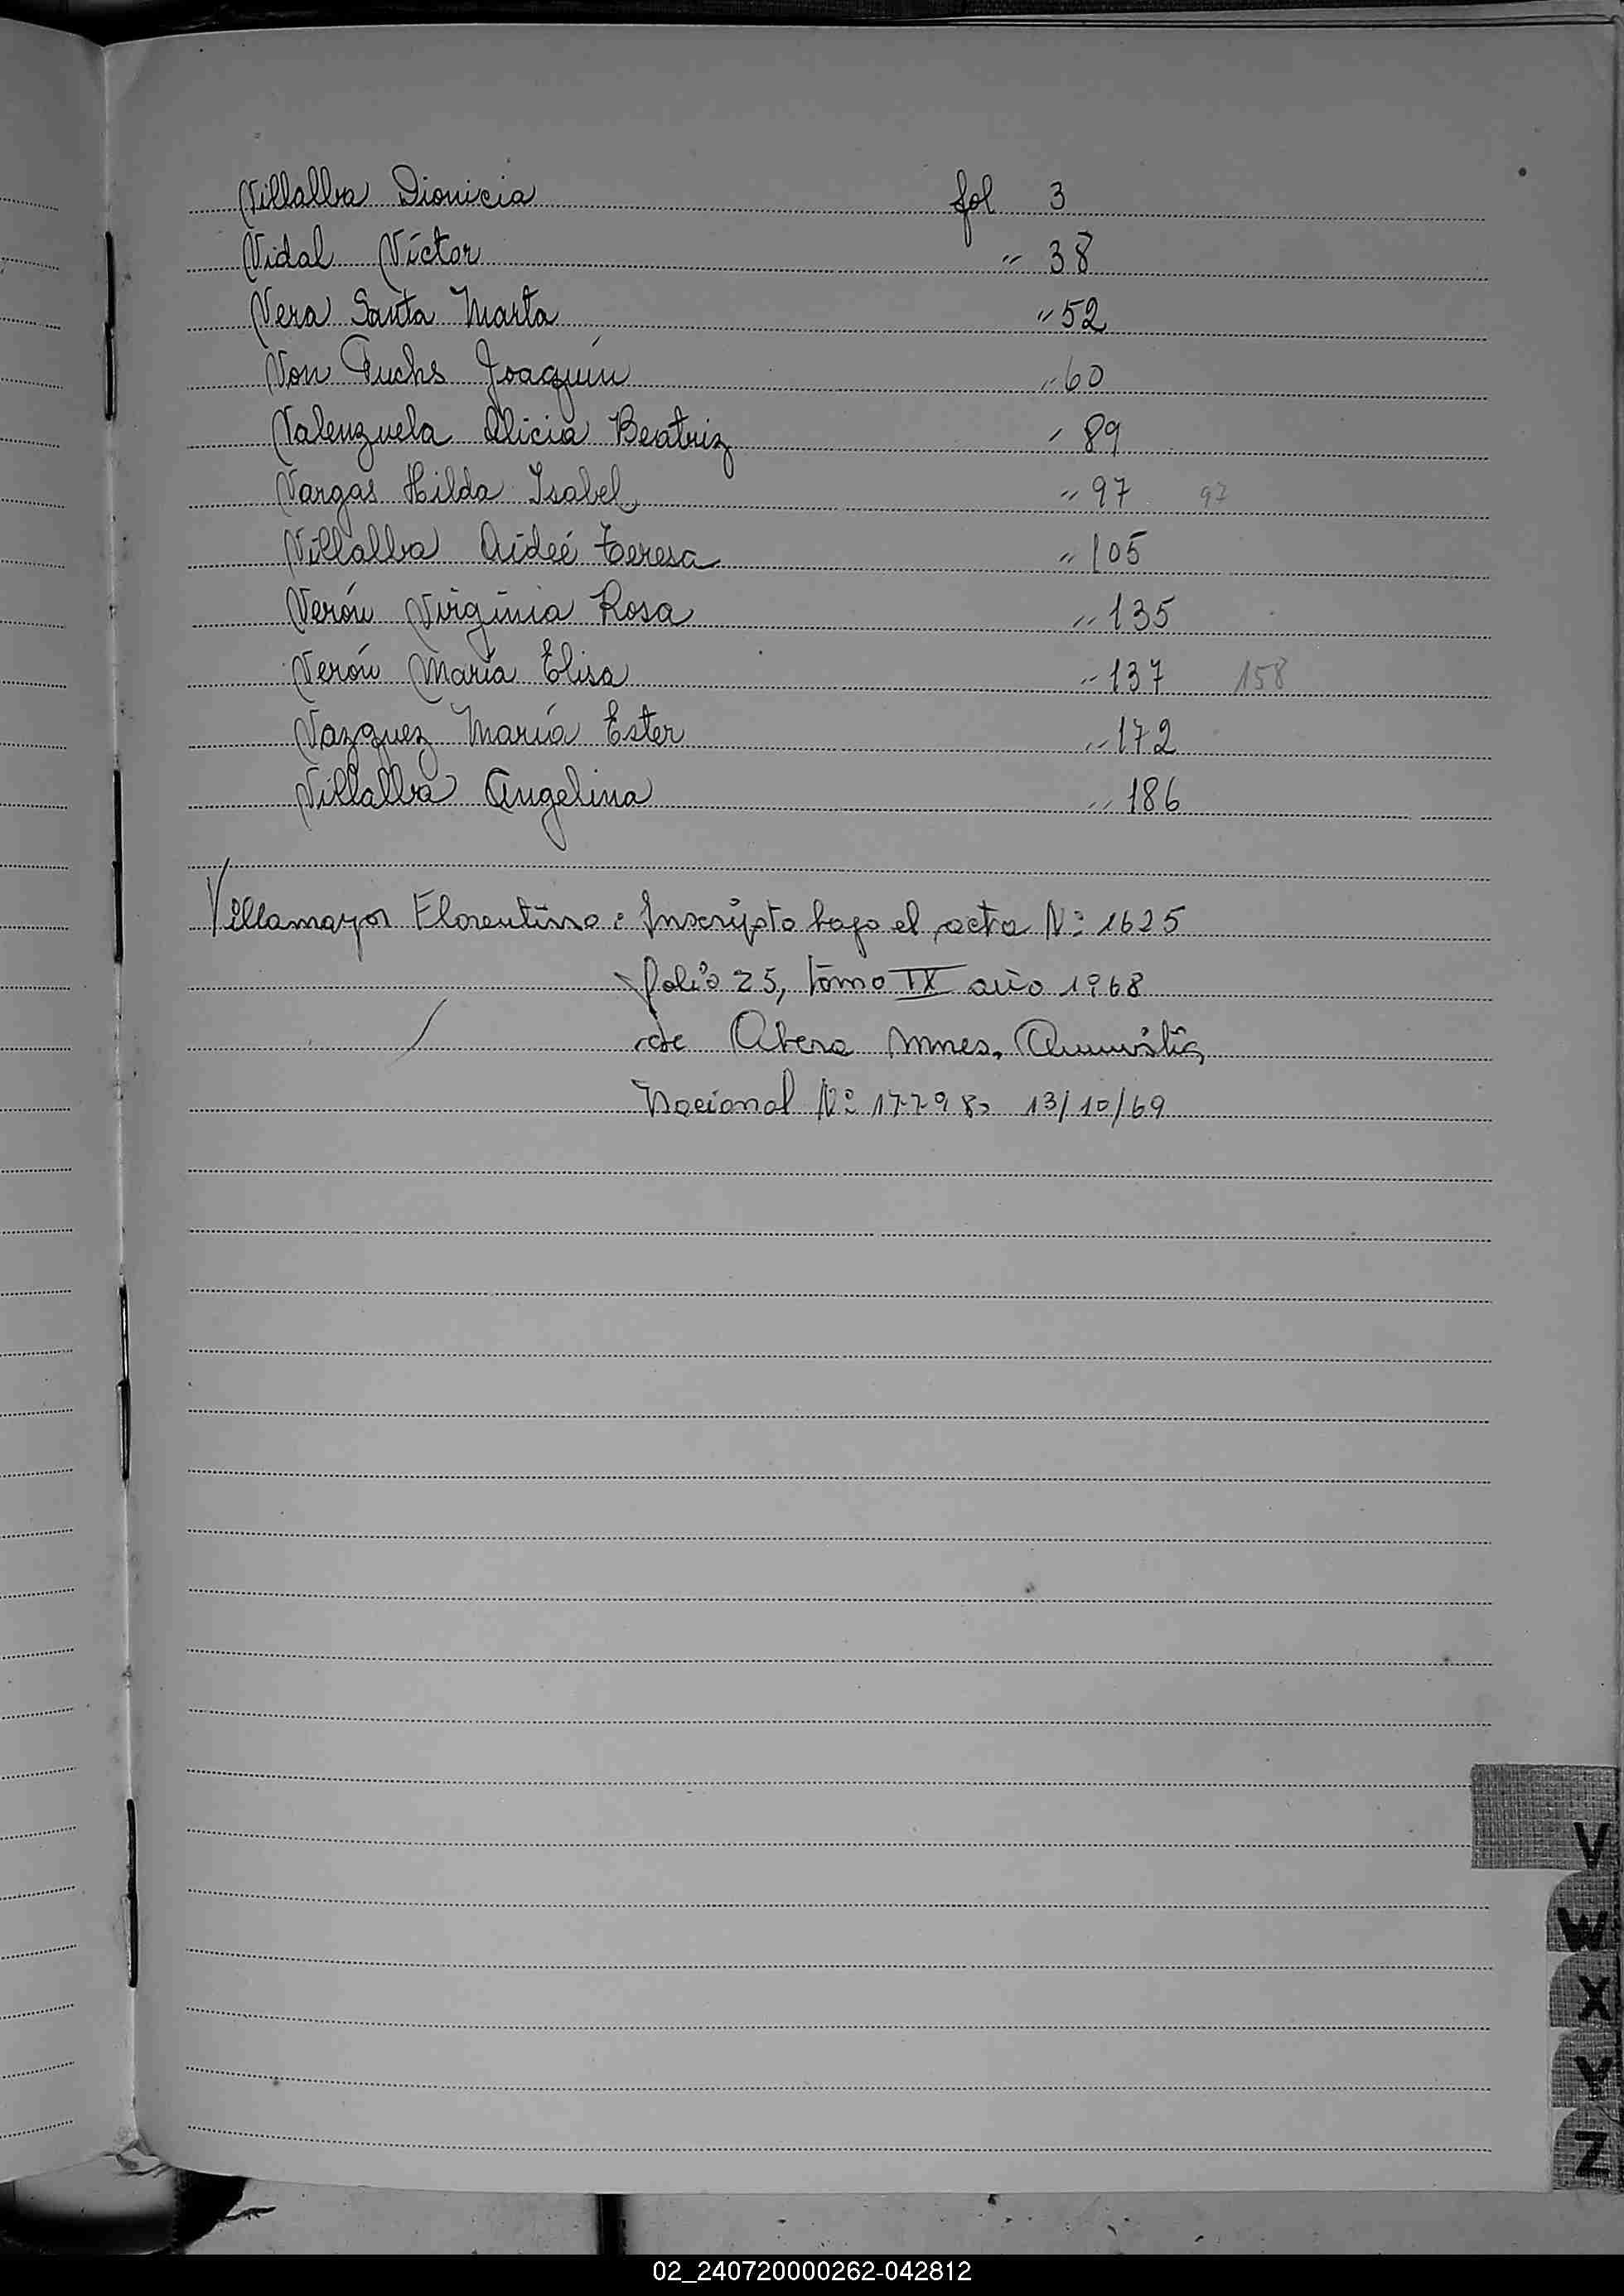 Villalba Dionicia fol 3
Vidal Víctor " 38
Vera Santa Marta " 52
Von Fuchs Joaquín " 60
Valenzuela Alicia Beatriz " 89
Vargas Hilda Isabel " 97 97
Villalba Aideé Teresa " 105
Verón Virginia Rosa " 135
Verón María Elisa " 137 158
Vazquez María Ester " 172
Villalba Angelina " 186
Villamayor Florentino: Inscripto bajo el acta Nº 1625
folio 25, tomo IX año 1968
de Obera Mnes. Amnistía
Nacional Nº 17798, 13/10/69
V
W
X
Y
Z
02_240720000262-042812